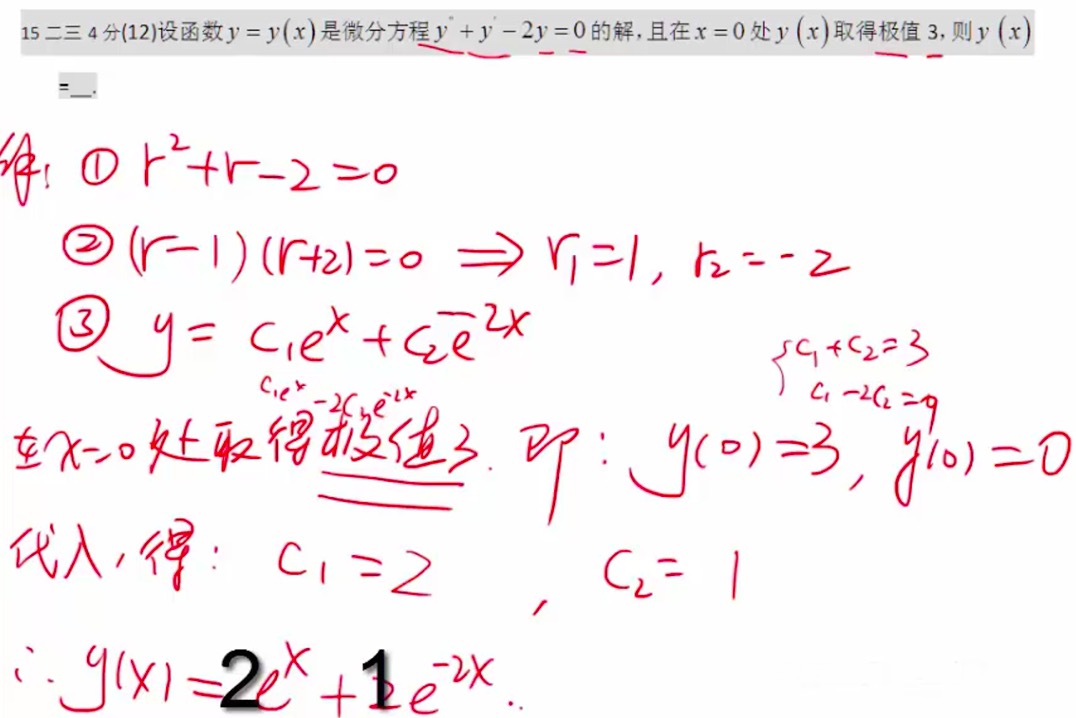 15 二三 4 分(12)设函数 y = y(x) 是微分方程 y″ + y′ − 2y = 0 的解,且在 x = 0 处 y (x) 取得极值 3,则 y (x)
=__.
解: ① r²+r−2=0
② (r−1)(r+2)=0 ⇒ r₁=1, r₂=−2
③ y= c₁eˣ + c₂e⁻²ˣ
{c₁+c₂=3
c₁eˣ −2c₂e⁻²ˣ
c₁−2c₂=0
在x=0处取得极值3. 即: y(0)=3, y′(0)=0
代入,得: c₁=2 , c₂= 1
∴ y(x)=2eˣ+1e⁻²ˣ..